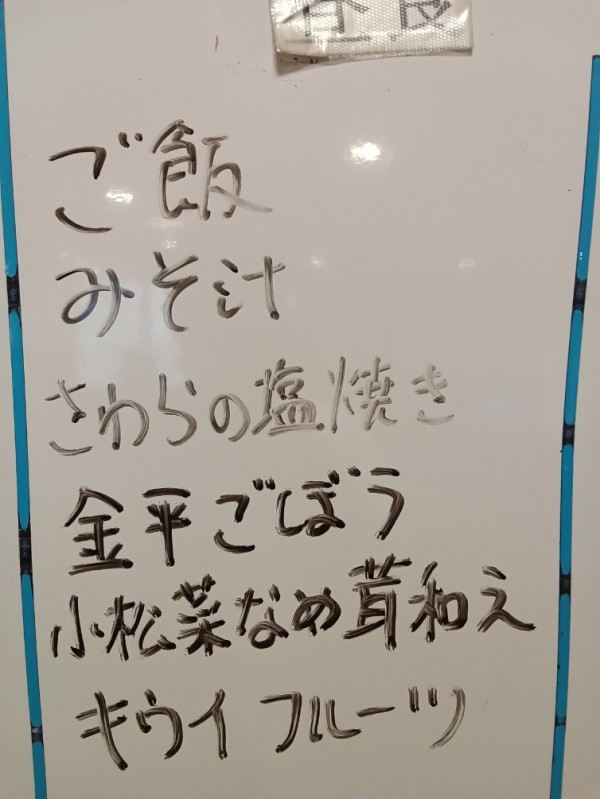 ご飯
みそ汁
さわらの塩焼き
金平ごぼう
小松菜なめ茸和え
キウイフルーツ